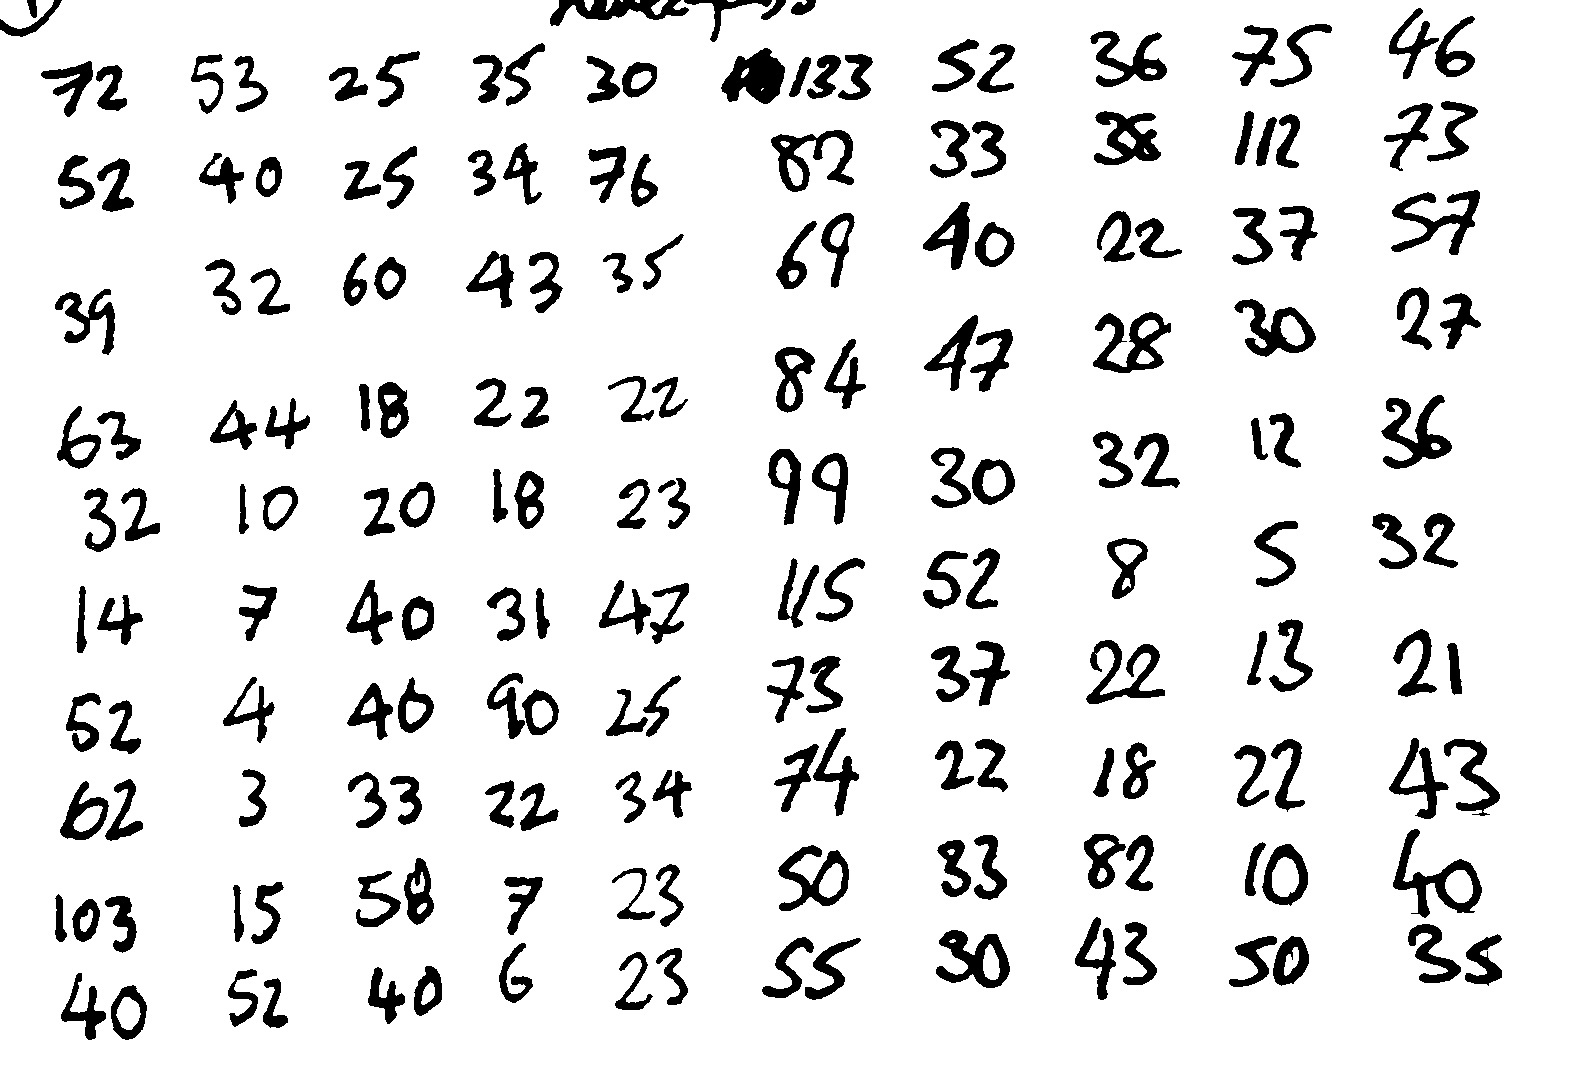 1
72 53 25 35 30 133 52 36 75 46
52 40 25 34 76 82 33 38 112 73
39 32 60 43 35 69 40 22 37 57
63 44 18 22 22 84 47 28 30 27
32 10 20 18 23 99 30 32 12 36
14 7 40 31 47 115 52 8 5 32
52 4 40 90 25 73 37 22 13 21
62 3 33 22 34 74 22 18 22 43
103 15 58 7 23 50 33 82 10 40
40 52 40 6 23 55 30 43 50 35